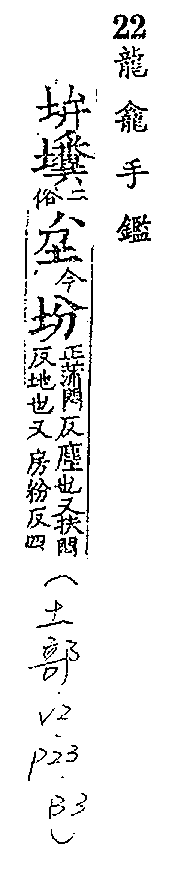 22龍龕手鑑
二俗坌今坋
正蒲悶反塵也又扶悶
反地也又房粉反四
(土部.V2.P23.B3)